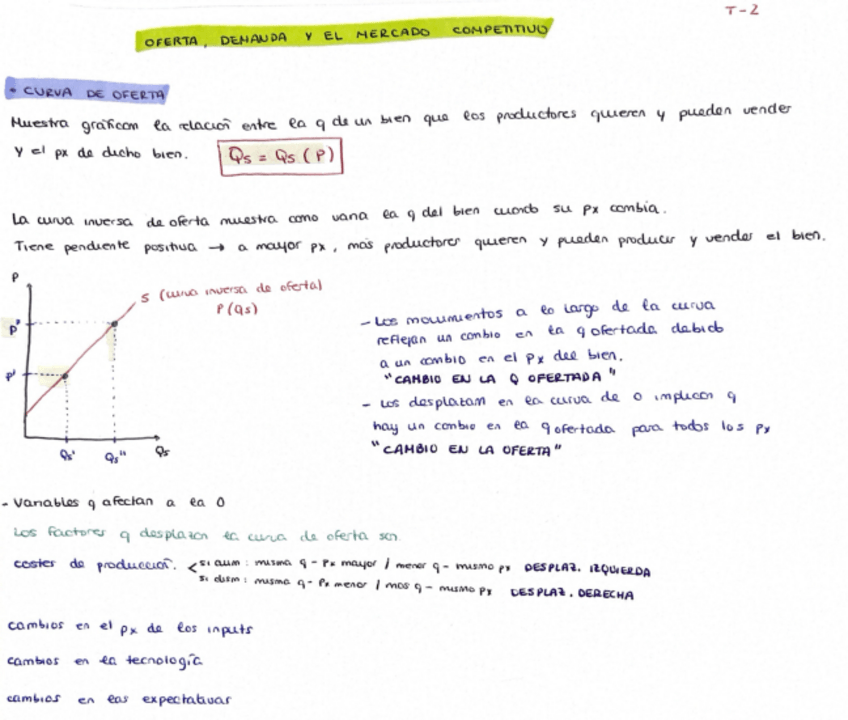 T-2
OFERTA, DEMANDA Y EL MERCADO COMPETITIVO
• CURVA DE OFERTA
Muestra gráficam la relación entre la q de un bien que los productores quieren y pueden vender
y el px de dicho bien. Qs = Qs (P)
La curva inversa de oferta muestra como varia la q del bien cuando su px cambia.
Tiene pendiente positiva → a mayor px, mas productores quieren y pueden producir y vender el bien.
P
S (curva inversa de oferta)
P(Qs)
P"
P'
Qs' Qs" Qs
- Los movimientos a lo largo de la curva
reflejan un cambio en la q ofertada debido
a un cambio en el px del bien.
"CAMBIO EN LA Q OFERTADA"
- Los desplazam en la curva de O implican q
hay un cambio en la q ofertada para todos los px
"CAMBIO EN LA OFERTA"
- Variables q afectan a la O
Los factores q desplazan la curva de oferta son
costes de producción. < si aum : misma q - px mayor / menor q - mismo px DESPLAZ. IZQUIERDA
si dism : misma q - px menor / mas q - mismo px DESPLAZ. DERECHA
cambios en el px de los inputs
cambios en la tecnología
cambios en las expectativas